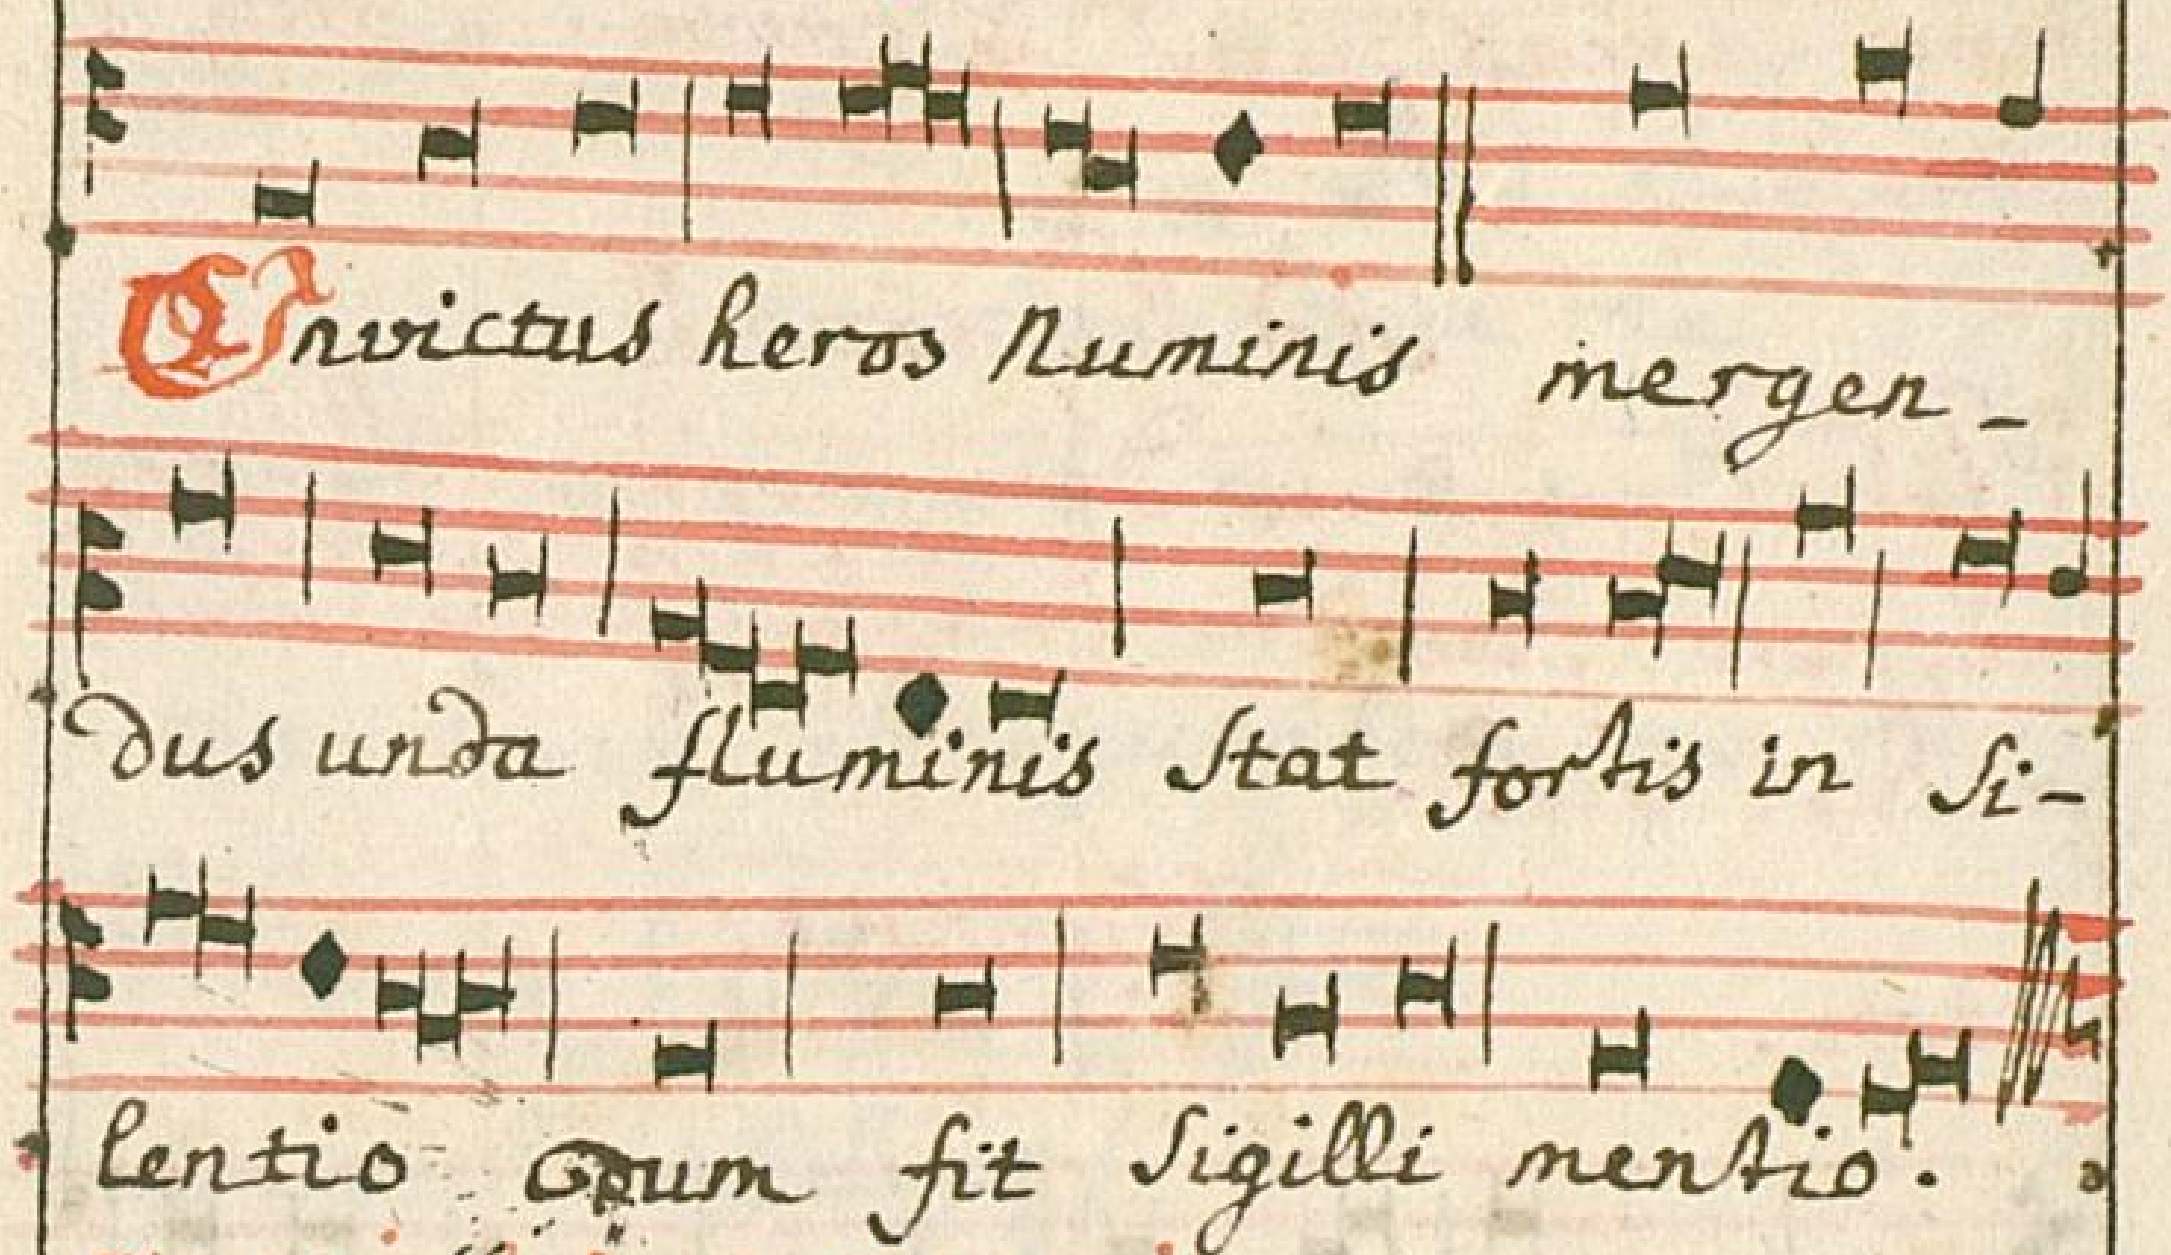 Invictus heros Numinis mergen-
dus unda fluminis stat fortis in si-
lentio dum fit sigilli mentio.